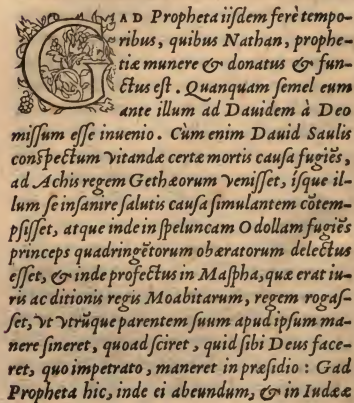 GAD Propheta iisdem ferè tempo-
ribus, quibus Nathan, prophe-
tiæ munere & donatus & fun-
ctus est. Quanquam semel eum
ante illum ad Dauidem à Deo
missum esse inuenio. Cùm enim Dauid Saulis
conspectum vitandæ certæ mortis causa fugiẽs,
ad Achis regem Gethæorum venisset, isque il-
lum se insanire salutis causa simulantem cõtem-
psisset, atque inde in speluncam Odollam fugiẽs
princeps quadringẽtorum obæratorum delectus
esset, & inde profectus in Maspha, quæ erat iu-
ris ac ditionis regis Moabitarum, regem rogas-
set, vt vtrũque parentem suum apud ipsum ma-
nere sineret, quoad sciret, quid sibi Deus face-
ret, quo impetrato, maneret in præsidio: Gad
Propheta hic, inde ei abeundum, & in Iudææ